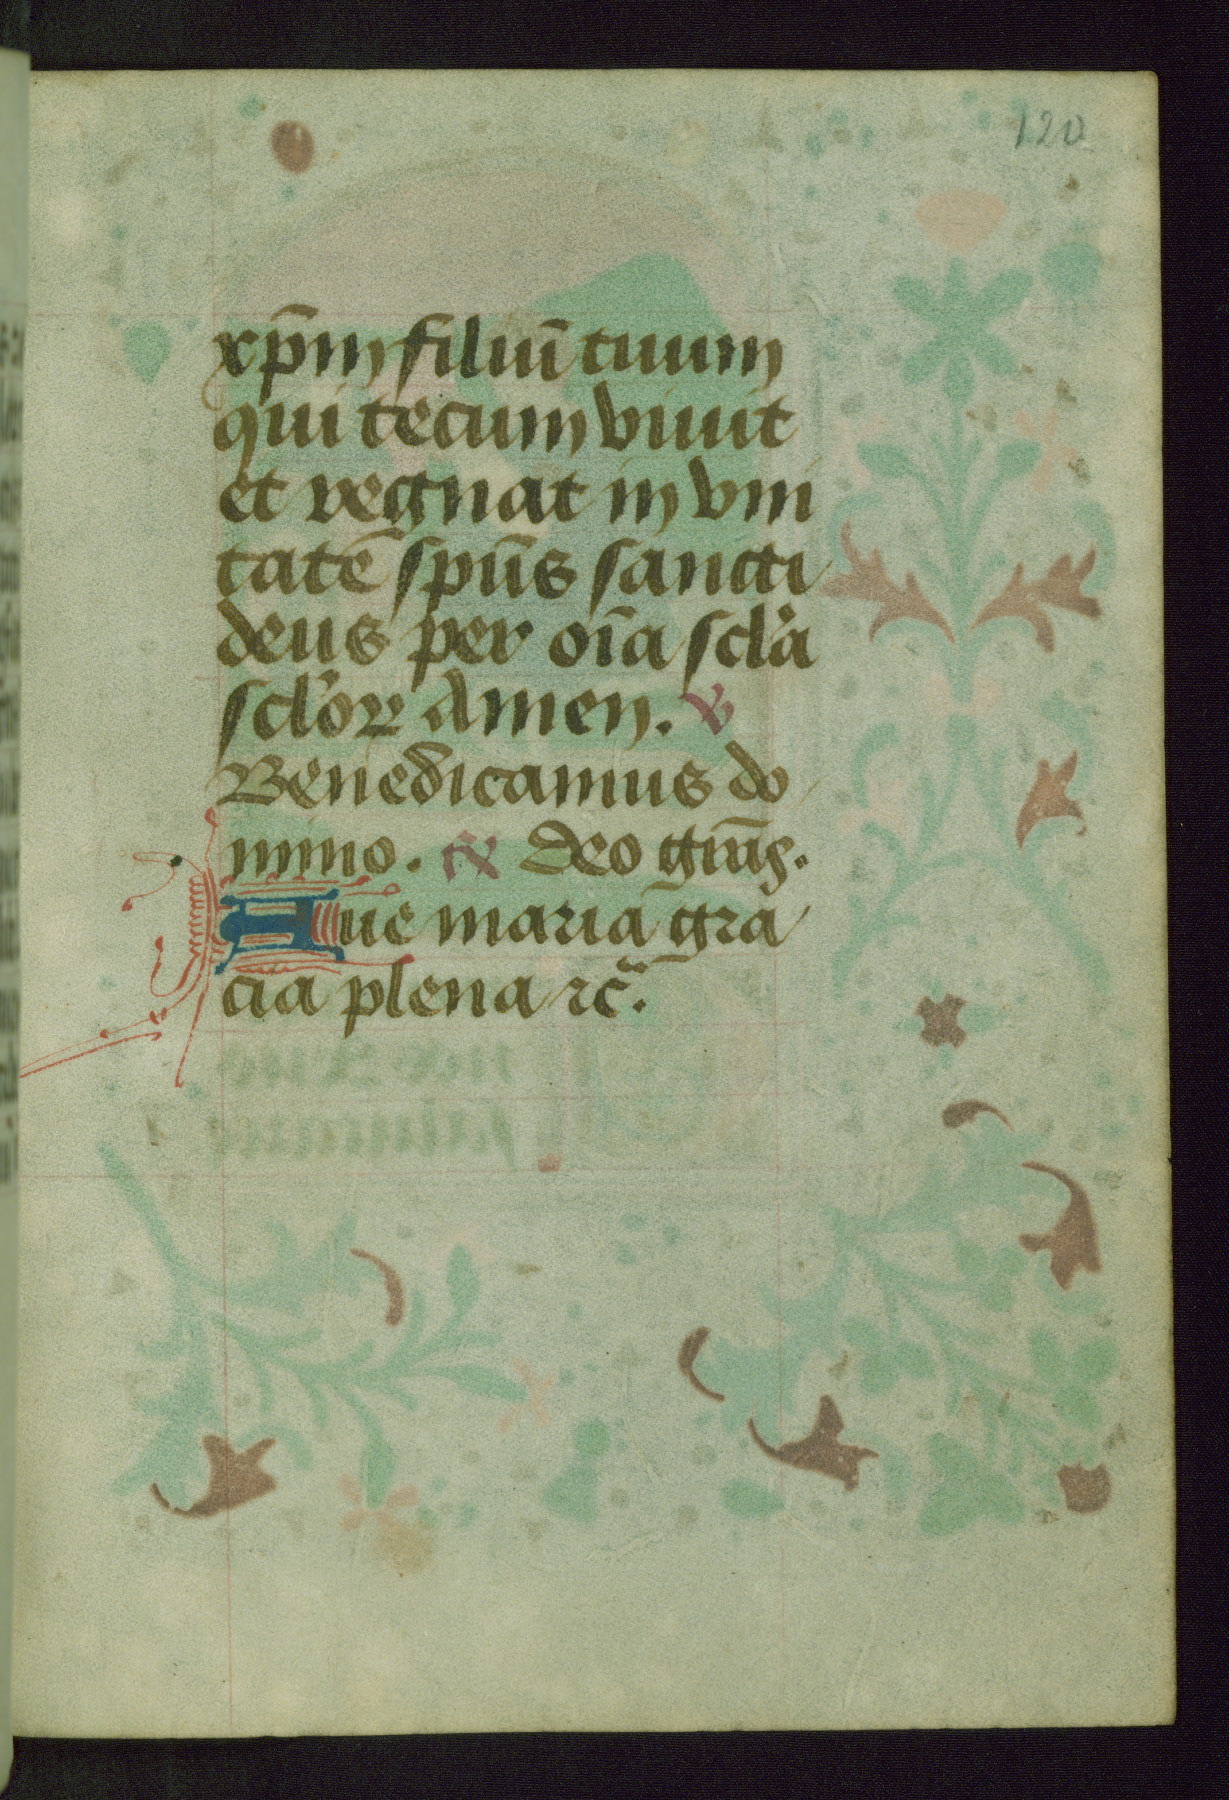 120
xp̄m filiū tuum
qui tecum viuit
et regnat in vni
tate᷑ sp̄us sancti
deus per oīa scl'a
scl'oꝝ Amen. ℣
Benedicamus do
mino. ℟ Deo gr̄as.
Aue maria gra
cia plena ⁊c̄.